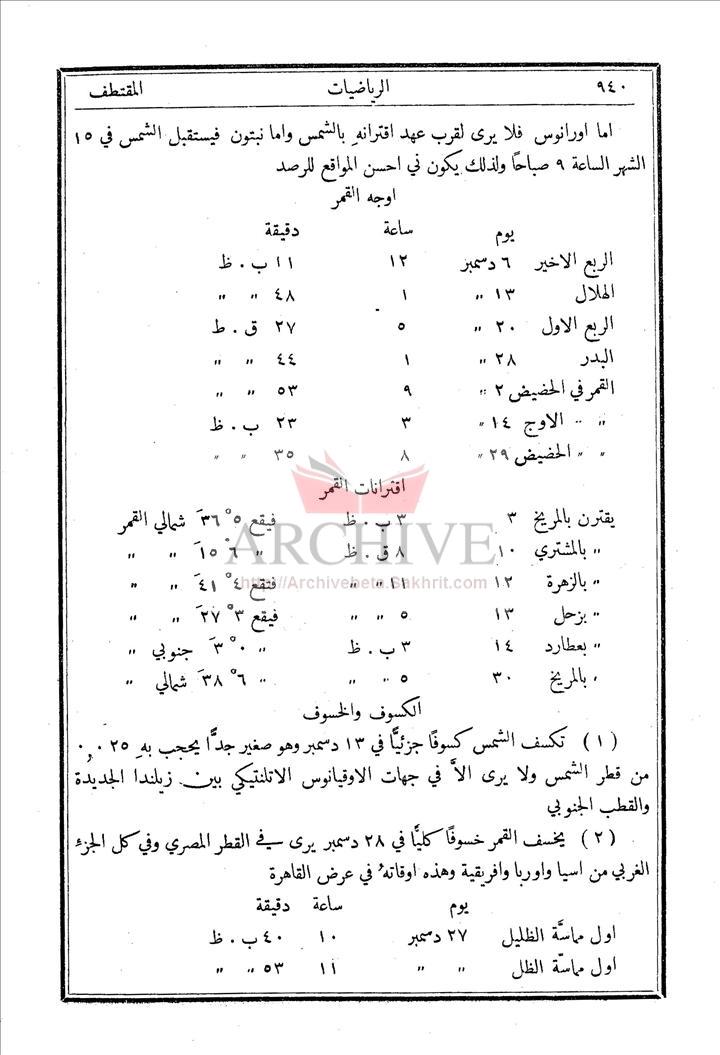 ٩٤٠ الرياضيات المقتطف
اما اورانوس فلا يرى لقرب عهد اقترانهِ بالشمس واما نبتون فيستقبل الشمس في ١٥
الشهر الساعة ٩ صباحًا ولذلك يكون في احسن المواقع للرصد
اوجه القمر
يوم ساعة دقيقة
الربع الاخير ٦ دسمبر ١٢ ١١ ب . ظ
الهلال ١٣ " ١ ٤٨ " "
الربع الاول ٢٠ " ٥ ٢٧ ق . ظ
البدر ٢٨ " ١ ٤٤ " "
القمر في الحضيض ٢ " ٩ ٥٣ " "
" " الاوج ١٤ " ٣ ٢٣ ب . ظ
" " الحضيض ٢٩ " ٨ ٣٥ " "
اقترانات القمر
يقترن بالمريخ ٣ ٣ ب . ظ فيقع ٥° ٣٦َ شمالي القمر
" بالمشتري ١٠ ٨ ق . ظ " ٦° ١٥َ " "
" بالزهرة ١٢ ١١ " " فتقع ٤° ٤١َ " "
" بزحل ١٣ ٥ " " فيقع ٣° ٢٧َ " "
" بعطارد ١٤ ٣ ب . ظ " ٠° ٣َ جنوبي "
" بالمريخ ٣٠ ٥ " " " ٦° ٣٨َ شمالي "
ARCHIVE
http://Archivebeta.Sakhrit.com
الكسوف والخسوف
(١) تكسف الشمس كسوفًا جزئيًّا في ١٣ دسمبر وهو صغير جدًّا يحجب بهِ ٠,٠٢٥
من قطر الشمس ولا يرى الاَّ في جهات الاوقيانوس الاتلنتيكي بين زيلندا الجديدة
والقطب الجنوبي
(٢) يخسف القمر خسوفًا كليًّا في ٢٨ دسمبر يرى في القطر المصري وفي كل الجزءِ
الغربي من اسيا واوربا وافريقية وهذه اوقاتهُ في عرض القاهرة
يوم ساعة دقيقة
اول مماسَّة الظليل ٢٧ دسمبر ١٠ ٤٠ ب . ظ
اول مماسَّة الظل " " ١١ ٥٣ " "